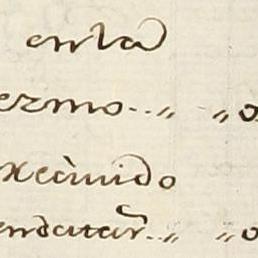 enla
ermo..,, ,,o
xecuuido
endatar..,, ,,o